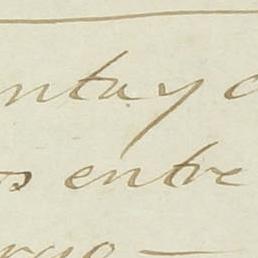 nta y c
os entre
rgo —